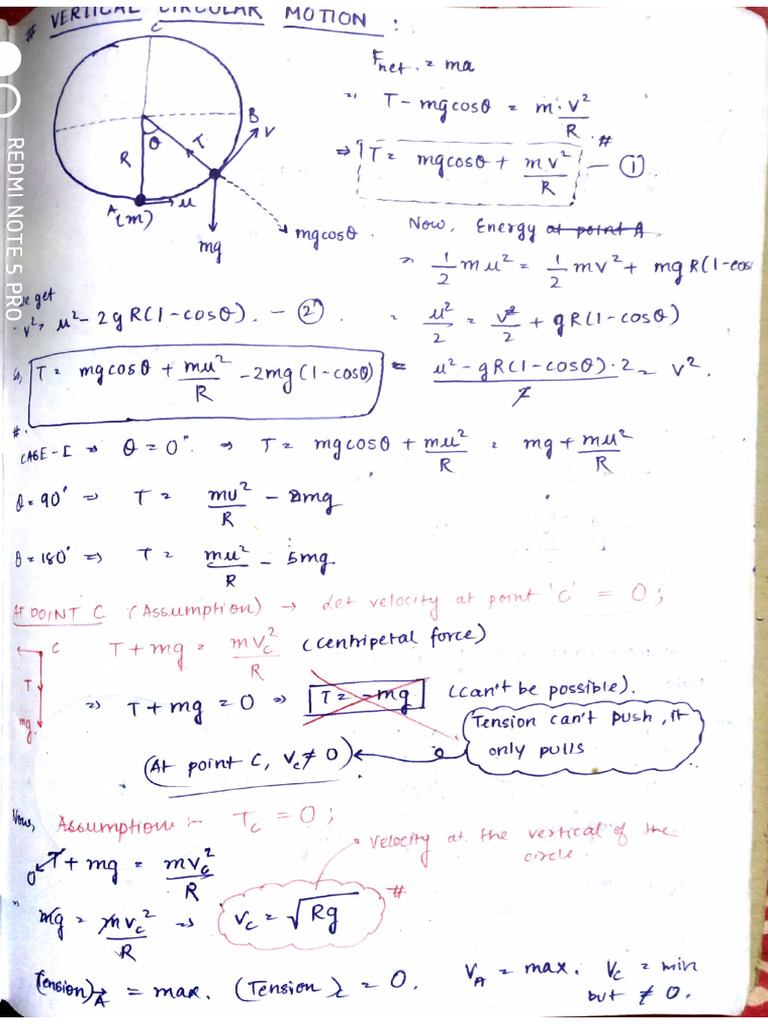 # VERTICAL CIRCULAR MOTION :
C
B
V
T
θ
R
A(m)
u
mg
mgcosθ
REDMI NOTE 5 PRO
Fnet = ma
⇒ T - mgcosθ = m·v²/R
⇒ T = mgcosθ + mv²/R # — ①
Now, Energy at point A
⇒ 1/2 mu² = 1/2 mv² + mgR(1-cos
= u²/2 = v²/2 + gR(1-cosθ)
we get
v² = u² - 2gR(1-cosθ). — ②
u² - gR(1-cosθ)·2 / 2 = v².
So, T = mgcosθ + mu²/R - 2mg(1-cosθ) =
#.
CASE-I ⇒ θ = 0° ⇒ T = mgcosθ + mu²/R = mg + mu²/R
θ = 90° ⇒ T = mu²/R - 2mg
θ = 180° ⇒ T = mu²/R - 5mg
AT POINT C (Assumption) → Let velocity at point 'C' = 0;
C
T
mg
T + mg = mVc²/R (centripetal force)
⇒ T + mg = 0 ⇒ T = -mg (can't be possible).
Tension can't push, it
only pulls
(At point C, Vc ≠ 0)
Now, Assumption :- Tc = 0;
Velocity at the vertical of the
circle
0 T + mg = mVc²/R
" mg = mVc²/R ⇒ Vc = √Rg #
(Tension)A = max. (Tension)c = 0. VA = max. Vc = min
but ≠ 0.